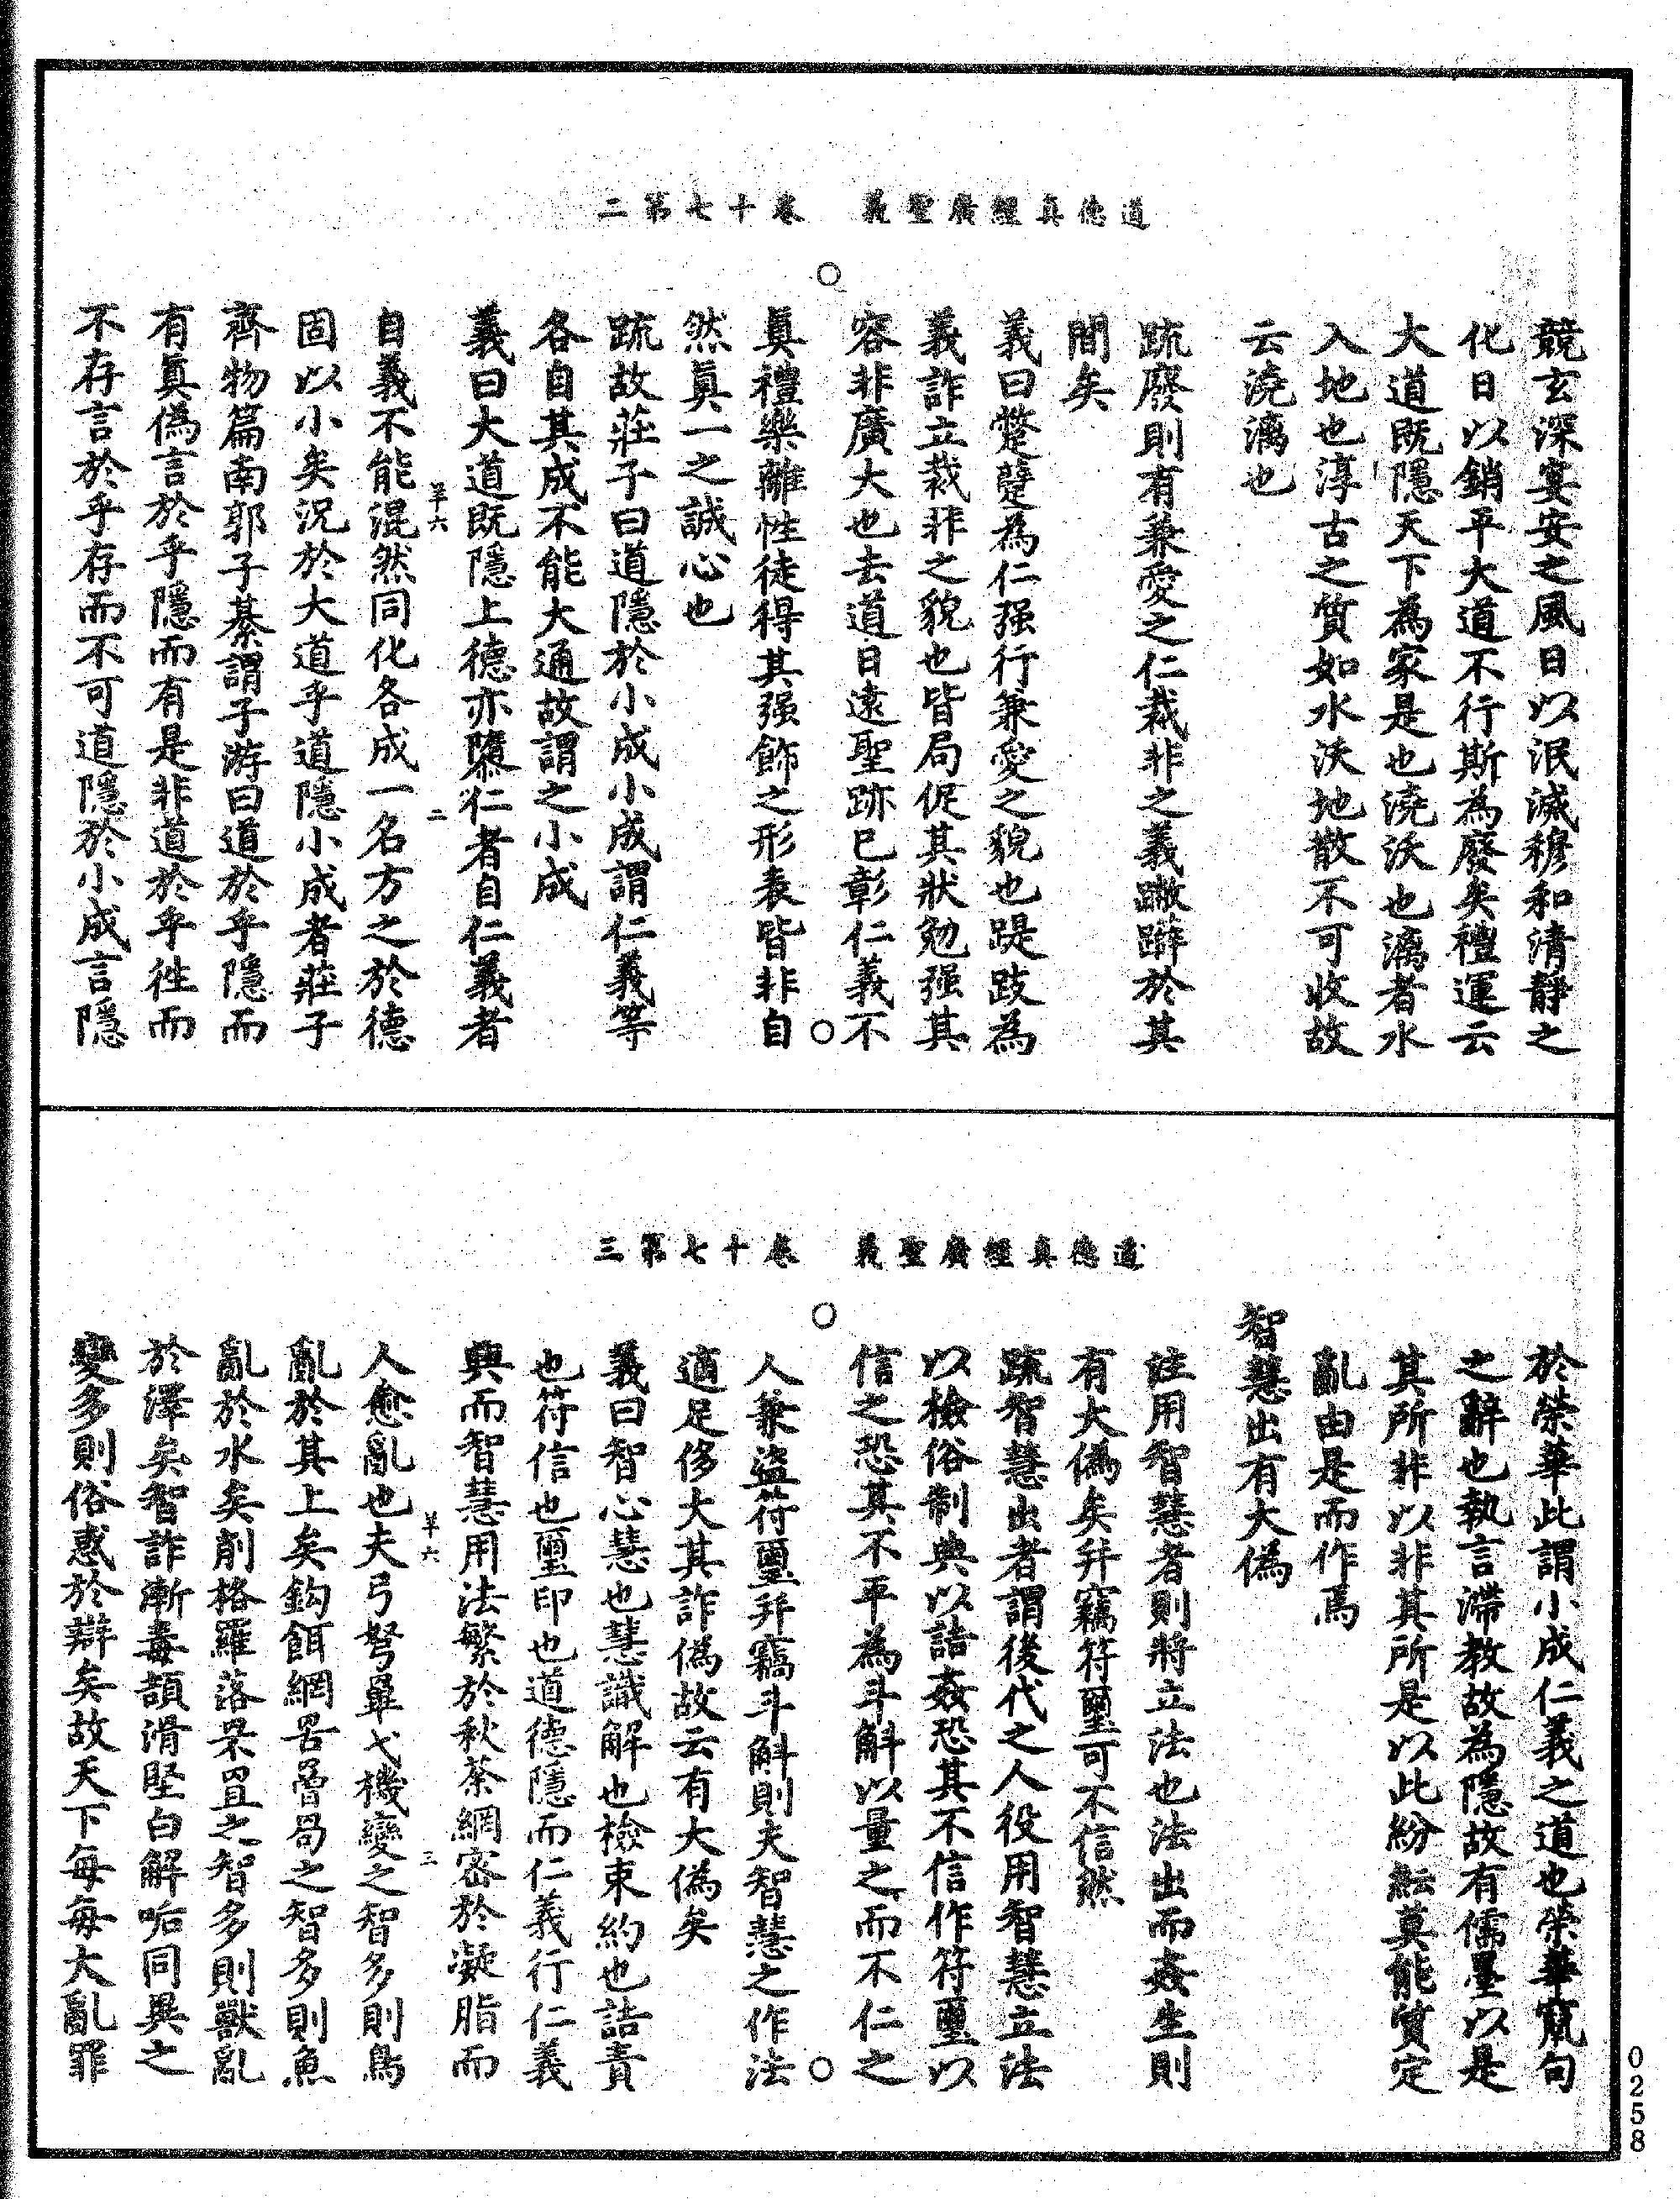 道德真經廣聖義　卷十七第二
競玄深宴安之風日以泯滅穆和清靜之
化日以銷平大道不行斯為廢矣禮運云
大道既隱天下為家是也澆沃也漓者水
入地也淳古之質如水沃地散不可收故
云澆漓也
疏廢則有兼愛之仁裁非之義蹩躠於其
間矣
義曰蹩躠為仁强行兼愛之貌也踶跂為
義詐立裁非之貌也皆局促其狀勉强其
容非廣大也去道日遠聖跡已彰仁義不
真禮樂離性徒得其强飾之形表皆非自
然真一之誠心也
疏故莊子曰道隱於小成小成謂仁義等
各自其成不能大通故謂之小成
義曰大道既隱上德亦隳仁者自仁義者
羊六　二
自義不能混然同化各成一名方之於德
固以小矣況於大道乎道隱小成者莊子
齊物篇南郭子綦謂子游曰道於乎隱而
有真偽言於乎隱而有是非道於乎徃而
不存言於乎存而不可道隱於小成言隱
道德真經廣聖義　卷十七第三
於榮華此謂小成仁義之道也榮華窾句
之辭也執言滯教故為隱故有儒墨以是
其所非以非其所是以此紛紜莫能質定
亂由是而作焉
智慧出有大偽
註用智慧者則將立法也法出而姦生則
有大偽矣并竊符璽可不信然
疏智慧出者謂後代之人役用智慧立法
以檢俗制典以詰姦恐其不信作符璽以
信之恐其不平為斗斛以量之而不仁之
人兼盜符璽并竊斗斛則夫智慧之作法
適足侈大其詐偽故云有大偽矣
義曰智心慧也慧識解也檢束約也詰責
也符信也璽印也道德隱而仁義行仁義
興而智慧用法繁於秋荼網密於凝脂而
羊六　三
人愈亂也夫弓弩畢弋機變之智多則鳥
亂於其上矣鈎餌網罟罾笱之智多則魚
亂於水矣削格羅落罘罝之智多則獸亂
於澤矣智詐漸毒頡滑堅白解垢同異之
變多則俗惑於辯矣故天下每每大亂罪
0258